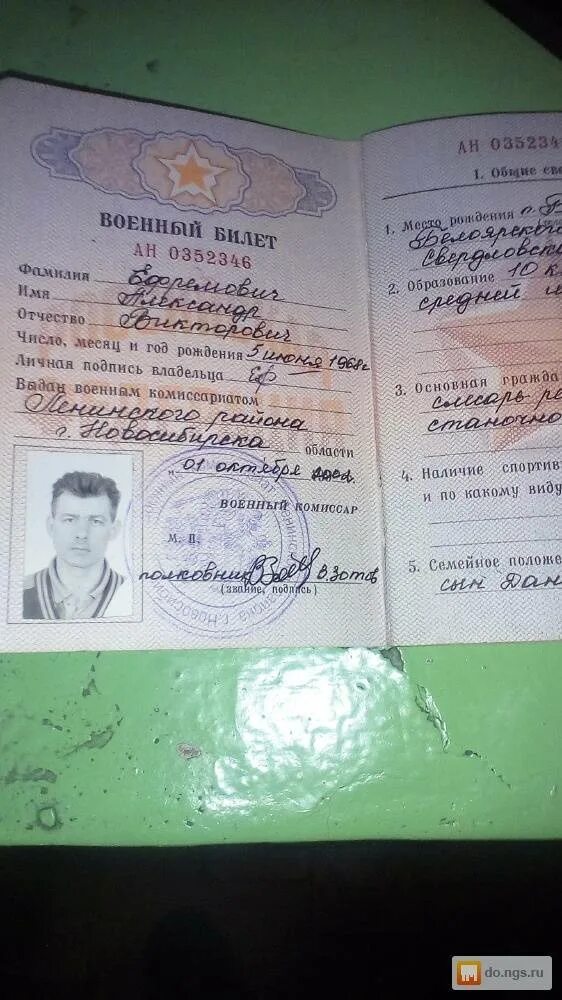 ВОЕННЫЙ БИЛЕТ
АН 0352346
Фамилия Ефремович
Имя Александр
Отчество Викторович
Число, месяц и год рождения 5 июня 1968г
Личная подпись владельца Еф
Выдан военным комиссариатом
Ленинского района
г. Новосибирска области
"01 октября
ВОЕННЫЙ КОМИССАР
М. П.
полковник В. Зотов
(звание, подпись)
АН 035234
1. Общие све
1. Место рождения п.
Белоярского
Свердловско
2. Образование 10 к
средней
3. Основная гражда
слесарь ре
станочно
4. Наличие спортив
и по какому виду
5. Семейное положе
сын Дан
do.ngs.ru